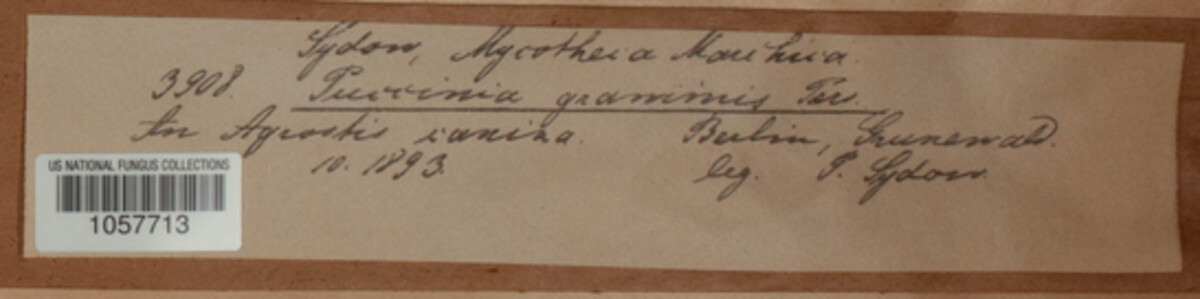 Sydow, Mycotheca Marchica.
3908. Puccinia graminis Pers.
An Agrostis canina. Berlin, Grunewald.
10. 1893. leg. P. Sydow.
US NATIONAL FUNGUS COLLECTIONS
1057713